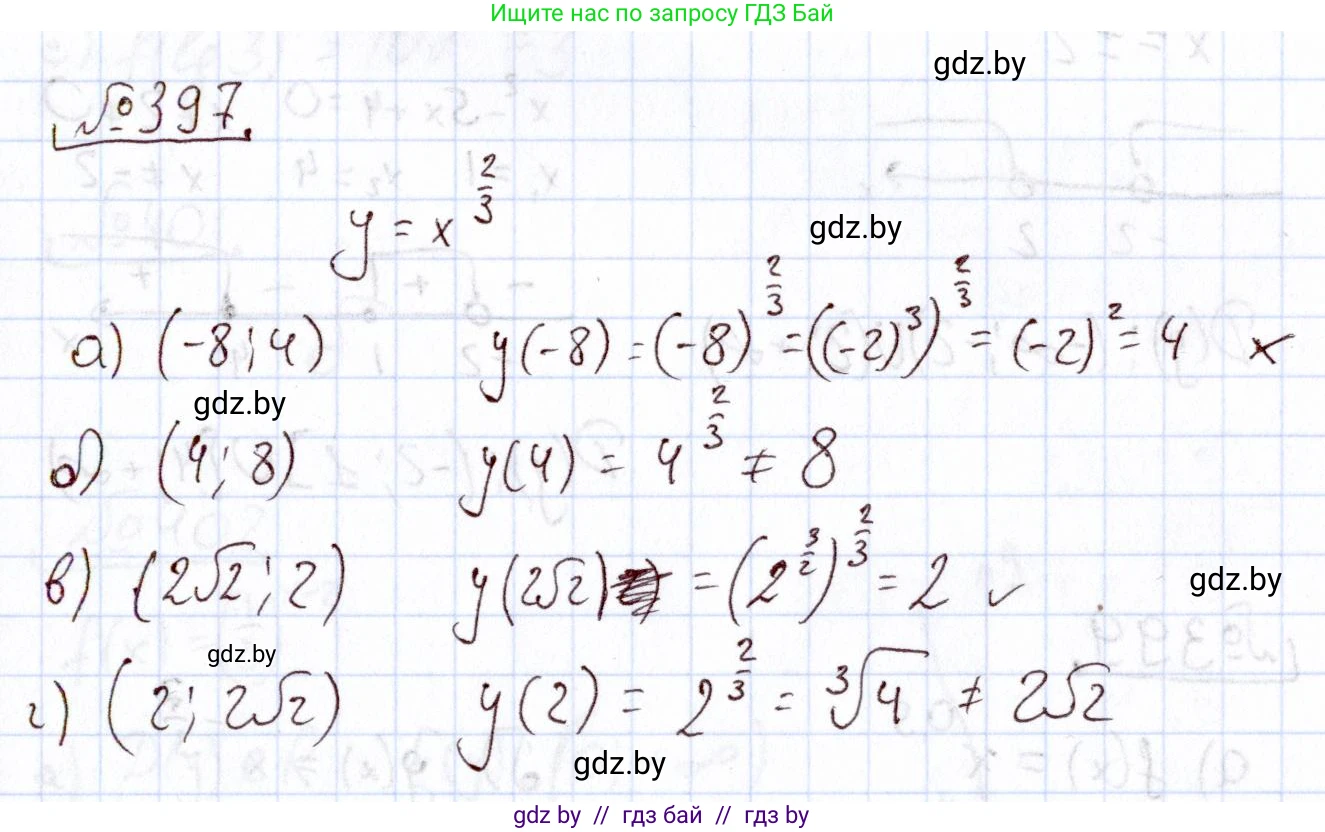 Ищите нас по запросу ГДЗ Бай
gdz.by
№397.
y = x^(2/3)
gdz.by
а) (-8; 4) y(-8) = (-8)^(2/3) = ((-2)^3)^(2/3) = (-2)^2 = 4 ×
gdz.by
б) (4; 8) y(4) = 4^(2/3) ≠ 8
в) (2√2; 2) y(2√2) = (2^(3/2))^(2/3) = 2 ✓
gdz.by
gdz.by
г) (2; 2√2) y(2) = 2^(2/3) = ∛4 ≠ 2√2
gdz.by
gdz by // гдз бай // гдз by